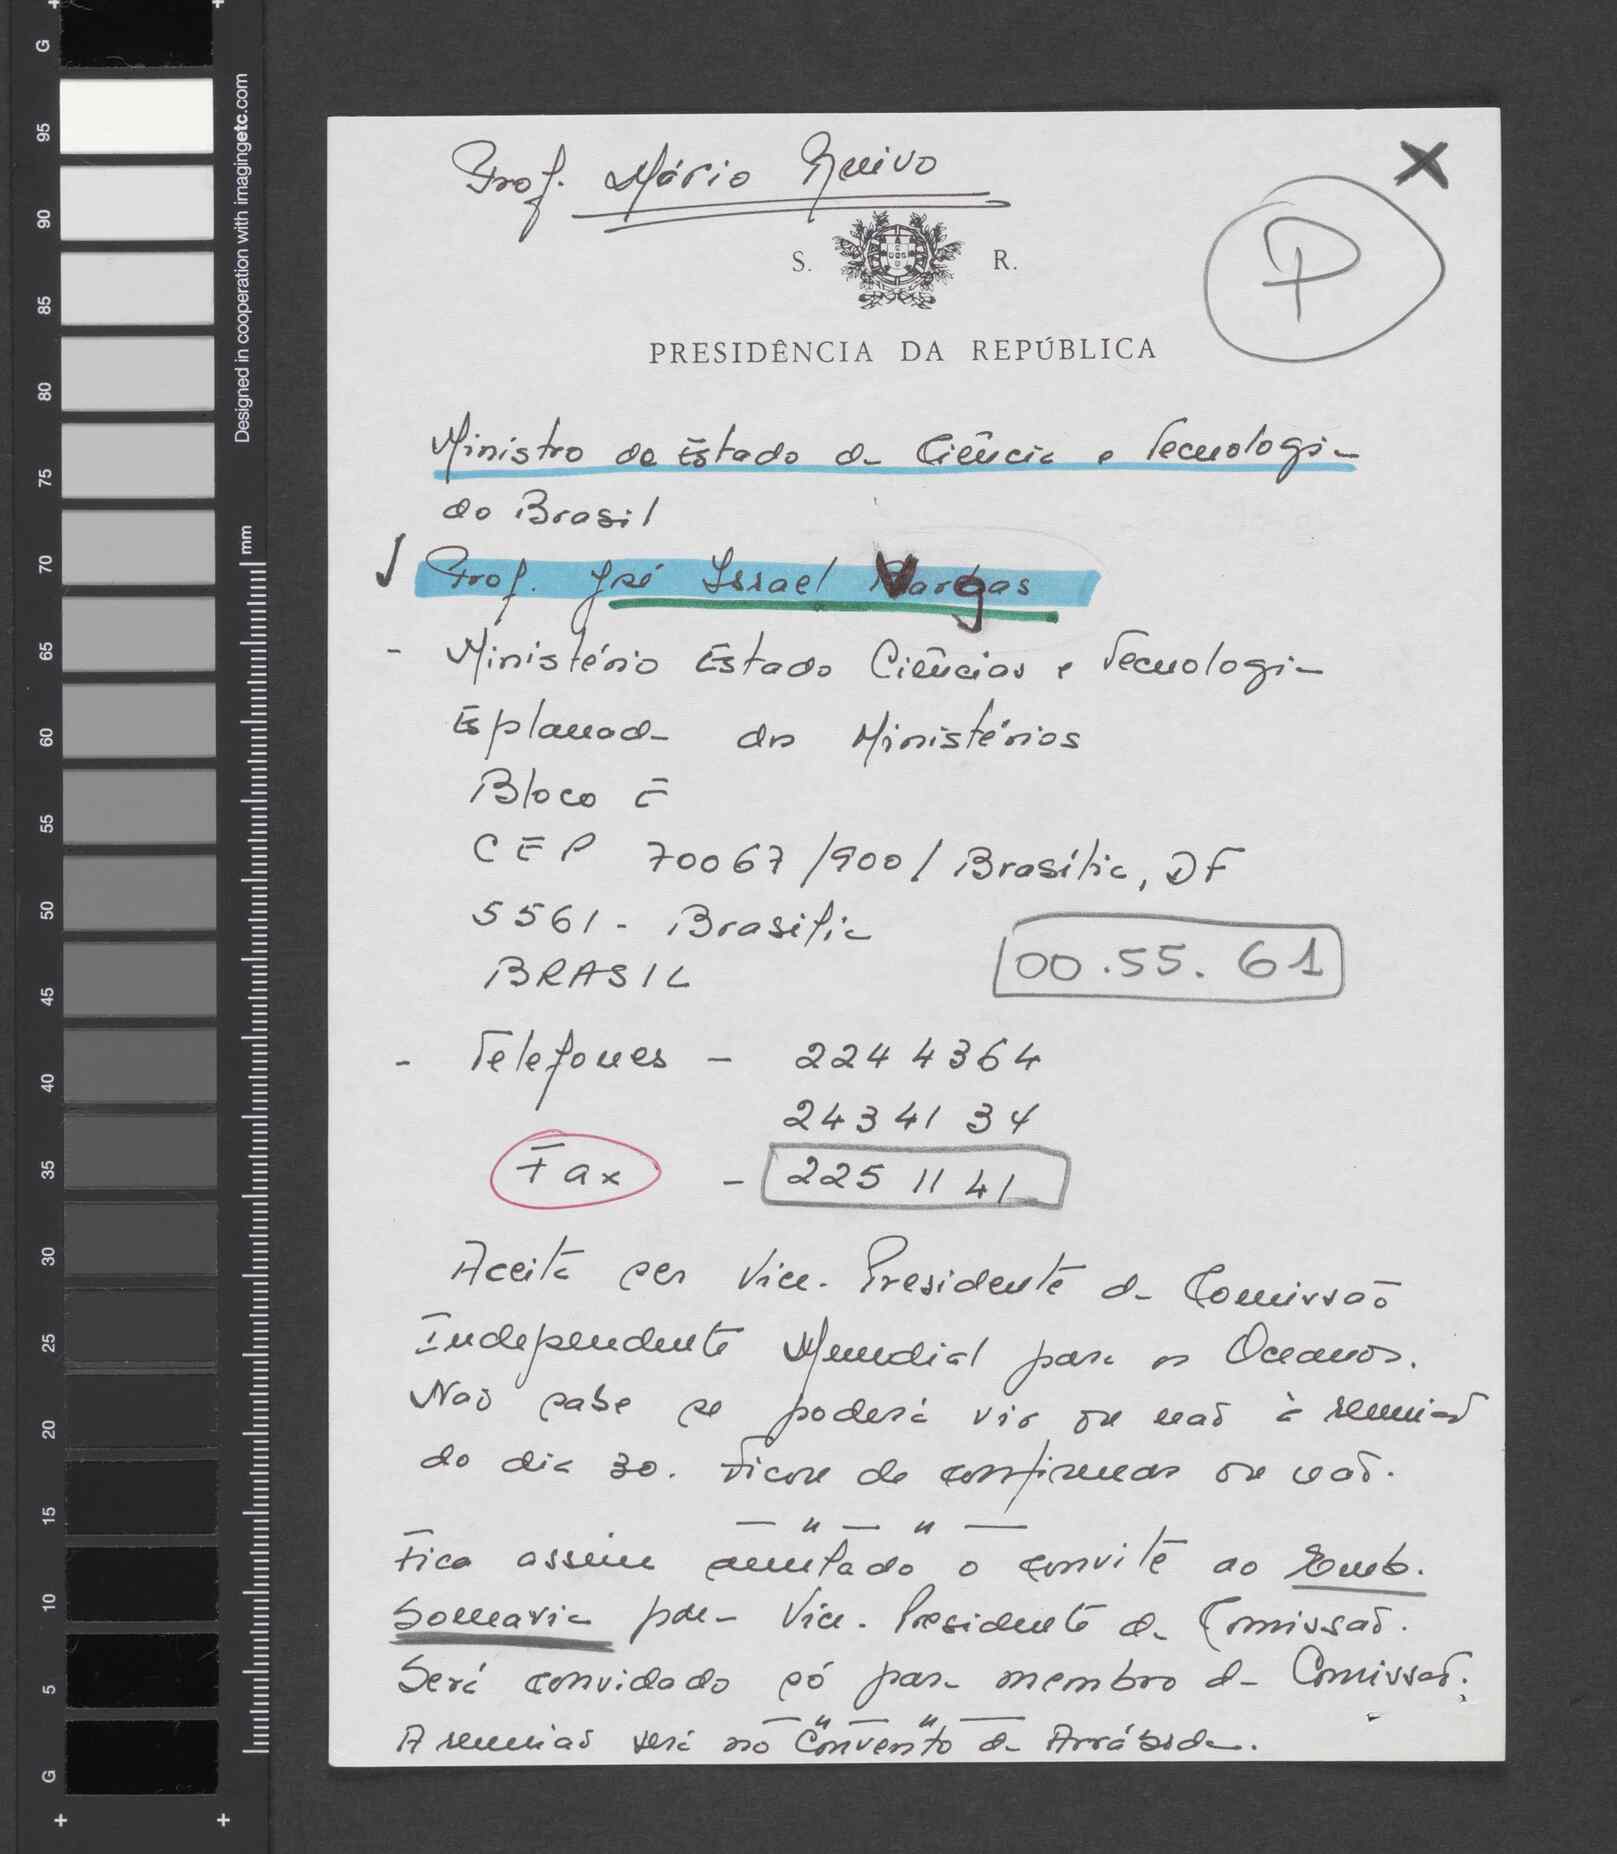 Prof. Mário Ruivo
X
P
S. R.
PRESIDÊNCIA DA REPÚBLICA
Ministro de Estado da Ciência e Tecnologia
do Brasil
Prof. José Israel Vargas
- Ministério Estado Ciências e Tecnologia
Esplanada dos Ministérios
Bloco E
CEP 70067/900/ Brasília, DF
5561 - Brasília
00.55.61
BRASIL
- Telefones - 224 4364
243 41 34
Fax - 225 11 41
Aceita ser Vice-Presidente da Comissão
Independente Mundial para os Oceanos.
Não sabe se poderá vir ou não à reunião
do dia 30. Ficou de confirmar ou não.
— " — " —
Fica assim anulado o convite ao Emb.
Somavia para Vice-Presidente da Comissão.
Será convidado só para membro da Comissão.
— " — " —
A reunião será no Convento da Arrábida.
G
95
90
85
80
75
70
65
60
55
50
45
40
35
30
25
20
15
10
5
G
Designed in cooperation with imagingetc.com
mm